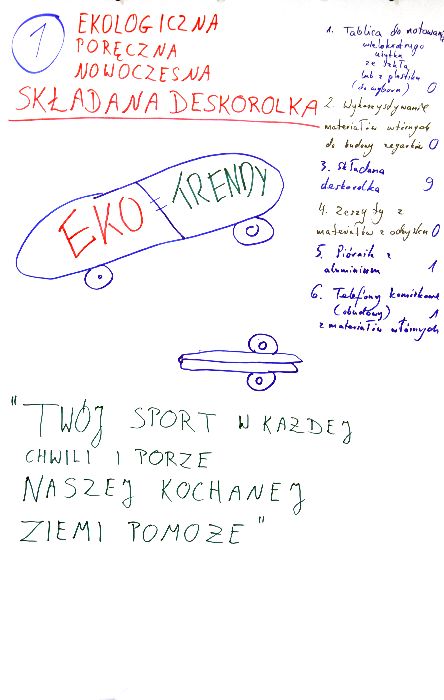 1
EKOLOGICZNA
PORĘCZNA
NOWOCZESNA
SKŁADANA DESKOROLKA
EKO TRENDY
"TWÓJ SPORT W KAŻDEJ
CHWILI I PORZE
NASZEJ KOCHANEJ
ZIEMI POMOŻE"
1. Tablica do notowania
wielokrotnego
użytku
ze szkła
lub z plastiku
(do wyboru) 0
2. Wykorzystywanie
materiałów wtórnych
do budowy zegarków 0
3. składana
deskorolka 9
4. Zeszyty z
materiałów z odzysku 0
5. Piórnik z
aluminium 1
6. Telefony komórkowe
(obudowy) 1
z materiałów wtórnych